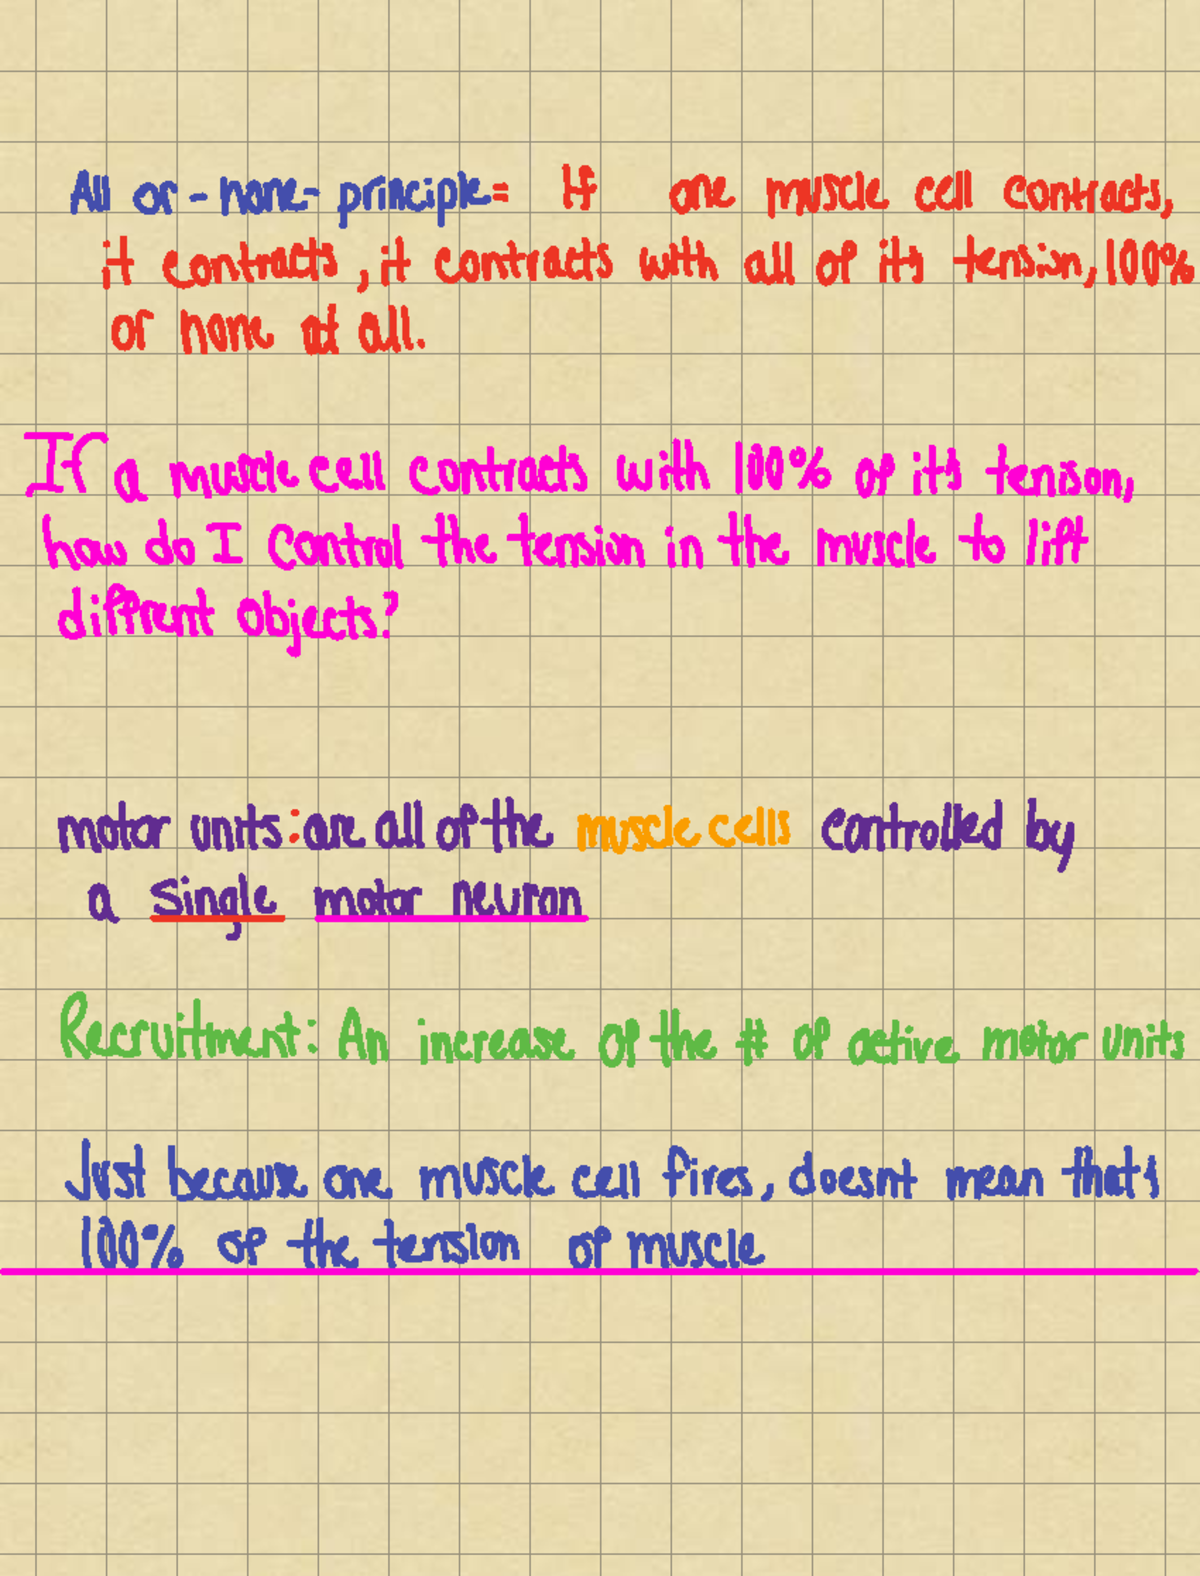 All or-none-principle= If one muscle cell contracts,
it contracts, it contracts with all of its tension, 100%
or none at all.
If a muscle cell contracts with 100% of its tenison,
how do I control the tension in the muscle to lift
diffrent objects?
motor units: are all of the muscle cells controlled by
a single motor neuron
Recruitment: An increase of the # of active motor units
Just because one muscle cell fires, doesnt mean that's
100% of the tension of muscle